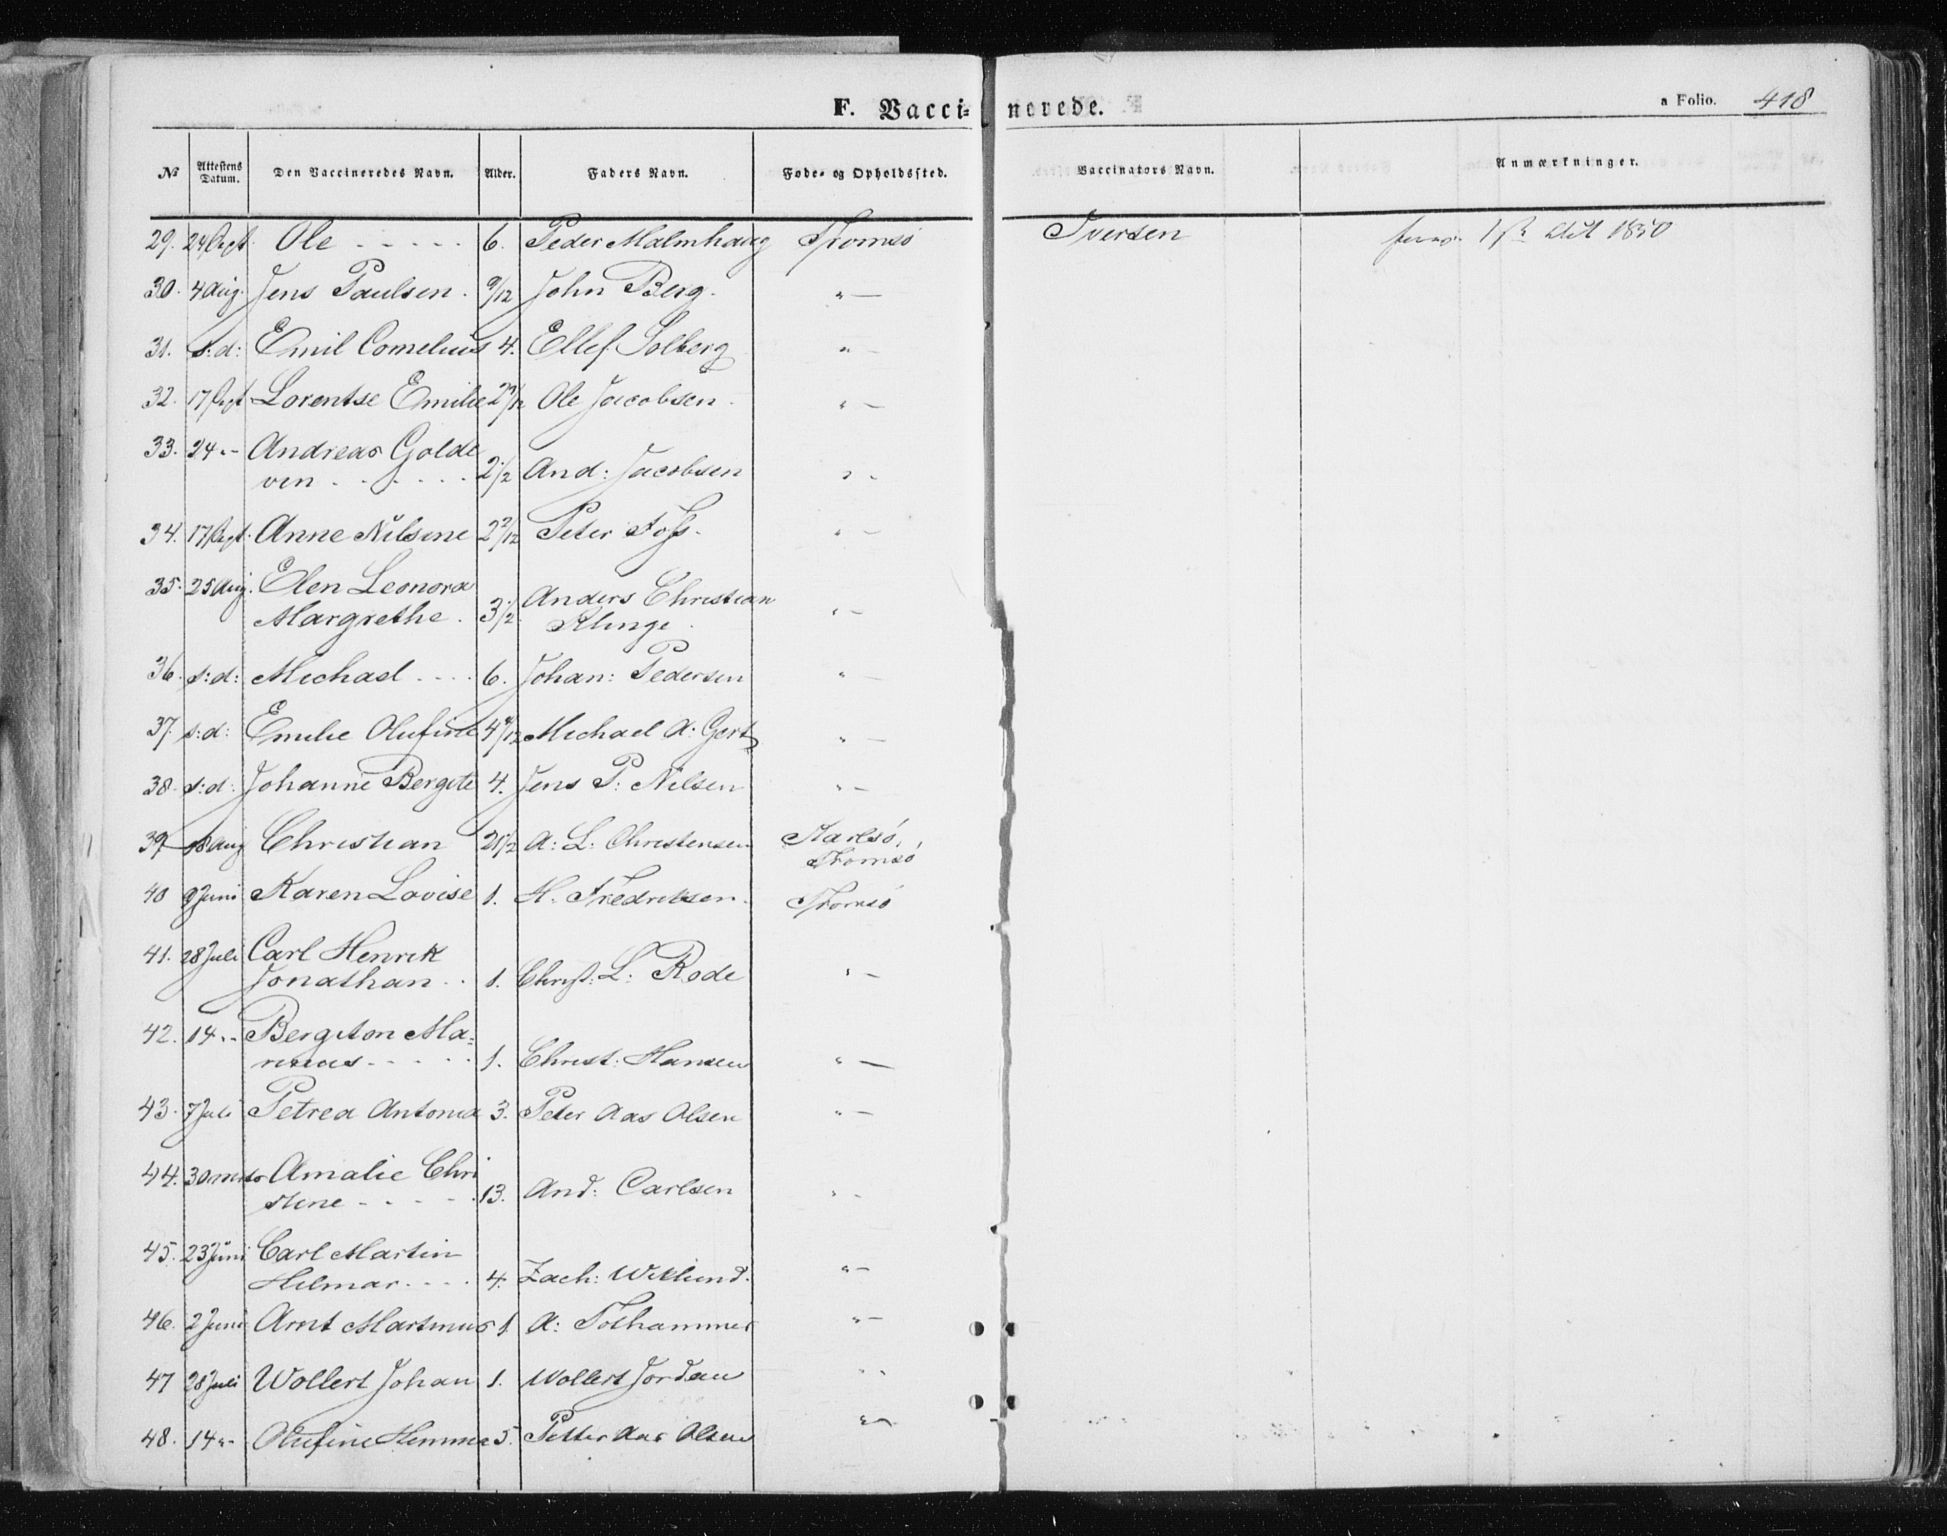 F. Vacci- nerede.
a Folio. 418
№ Attestens Datum. Den Vaccineredes Navn. Alder. Faders Navn. Føde- og Opholdssted. Vaccinators Navn. Anmærkninger.
29. 24 Sept. Ole - - - - - 6. Peder Malmhaug Tromsø Iversen 1850
30. 4 Aug. Jens Paulsen. 9/12 John Berg. " —
31. s:d: Emil Cornelius 4. Ellef Solberg " —
32. 17 Sept Lorentse Emilie Ole Jacobsen. " —
33. 24 "- Andreas Golde
ven - - - - - 2 1/2 And: Jacobsen " -
34. 17 Sept. Anne Nilsine 2 2/12 Peter Foss. " —
35. 25 Aug. Elen Leonora
Margrethe. 3 1/2 Anders Christian
Klinge. " —
36. s:d: Michael - - - 6. Johan: Pedersen " —
37. s:d: Emilie Olufine Michael A: Gertz " —
38. s:d: Johanne Bergite 4. Jens P: Nilsen " —
39. 18 Aug Christian 2 1/2 A: L: Christensen Karlsø,
Tromsø
40 9 Juni Karen Lovise 1. H. Fredriksen. Tromsø
41. 28 Juli Carl Henrik
Jonathan - - 1. Christ: L. Rode " —
42. 14 "- Bergiton Ma-
rinus - - - - - 1. Christ: Hansen " —
43. 7 Juli Petrea Antonia 3. Peter Aas Olsen " —
44. 30 Amalie Chri
stine - - - - - 13. And: Carlsen " -
45. 23 Juni Carl Martin
Hilmar - - - - 4. Zach: Wiklund. " —
46. 2 Juni Arnt Martinus 1. A: Tothammer " —
47 28 Juli Wollert Johan 1. Wollert Jordan " "
48. 14 "- Olufine Hemma 5. Petter Aas Olsen " —